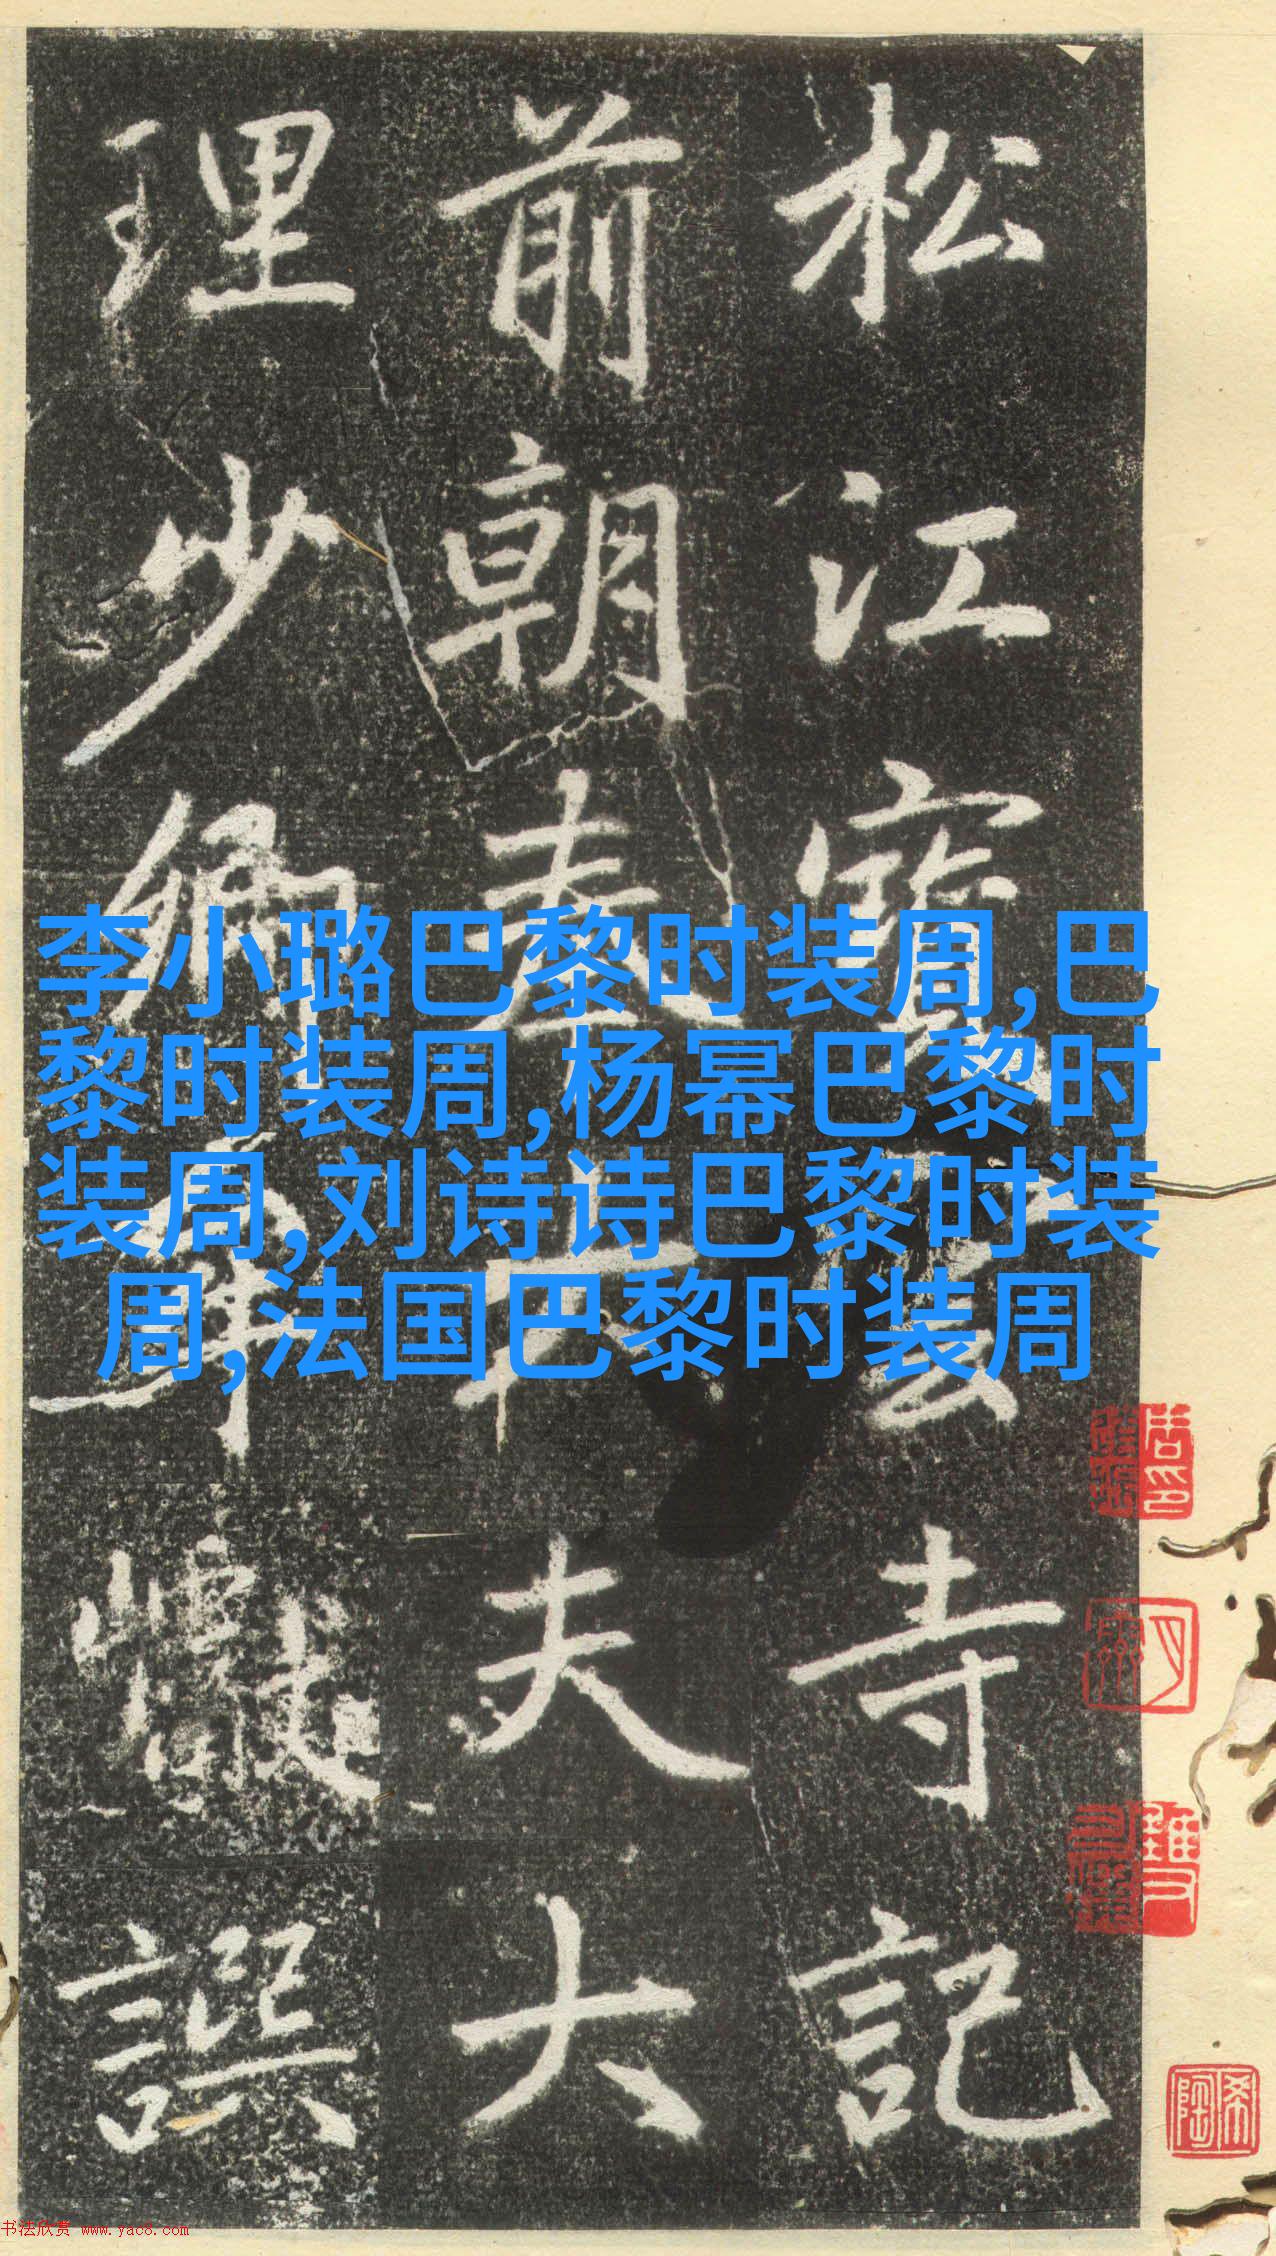 松江寶雲寺記
前朝奉大夫大
理少卿軍
譔
李小璐巴黎时装周,巴
黎时装周,杨幂巴黎时
装周,刘诗诗巴黎时装
周,法国巴黎时装周
书法欣赏 www.yac8.com